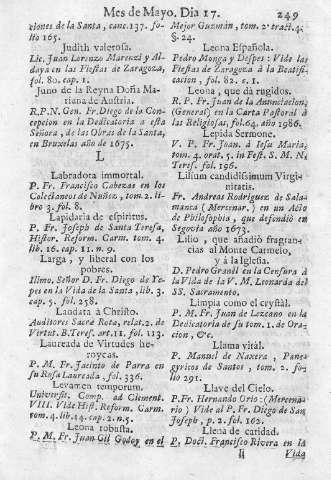 Mes de Mayo. Dia 17. 249
ziones de la Santa, canc. 137. fo-
lio 165.
Judith valerosa.
Lic. Juan Lorenzo Marenzi y Al-
daya en las Fiestas de Zaragoza,
fol. 80. cap. 1.
Juno de la Reyna Doña Ma-
riana de Austria.
R.P.N. Gen. Fr. Diego de la Con-
cepcion en la Dedicatoria a esta
Señora, de las Obras de la Santa,
en Bruxelas año de 1675.
L
Labradora immortal.
P. Fr. Francisco Cabezas en los
Colectaneos de Nuñez, tom. 2. li-
bro 3. fol. 8.
Lapidaria de espiritus.
P. Fr. Joseph de Santa Teresa,
Histor. Reform. Carm. tom. 4.
lib. 16. cap. 11. n. 9.
Larga, y liberal con los
pobres.
Ilimo. Señor D. Fr. Diego de Ye-
pes en la Vida de la Santa, lib. 3.
cap. 5. fol. 258.
Laudata à Christo.
Auditores Sacræ Rotæ, relat. 2. de
Virtut. B. Teres. art. 11. fol. 113.
Laureada de Virtudes he-
roycas.
P. M. Fr. Jacinto de Parra en
su Rosa Laureada, fol. 336.
Levamen temporum.
Universit. Comp. ad Clement.
VIII. Vide Hist. Reform. Carm.
tom. 4. lib. 14. cap. 2. n. 5.
Leona robusta.
P. M. Fr. Juan Gil Godoy en el
Mejor Guzmán, tom. 2. tract. 4.
§. 24.
Leona Española.
Pedro Monga y Despes: Vide las
Fiestas de Zaragoza à la Beatifi-
cacion, fol. 82. c. 1.
Leona, que dà rugidos.
R. P. Fr. Juan de la Anunciacion,
(General) en la Carta Pastoral à
las Religiosas, fol. 64. año 1986.
Lepida Sermone.
V. P. Fr. Joan. à Iesu Maria,
tom. 4. orat. 5. in Fest. S. M. N.
Teres. fol. 196.
Lilium candidissimum Virgi-
nitatis.
Fr. Andreas Rodriguez de Sala-
manca (Mercenar.) en un Acto
de Philosophia, que defendiò en
Segovia año 1673.
Lilio, que añadiò fragran-
cias al Monte Carmelo,
y à la Iglesia.
D. Pedro Granel en la Censura à
la Vida de la V. M. Leonarda del
SS. Sacramento.
Limpia como el crystàl.
P. M. Fr. Juan de Lezcano en la
Dedicatoria de su tom. 1. de Ora-
cion, &c.
Llama vitàl.
P. Manuel de Naxera, Pane-
gyricos de Santos, tom. 2. fo-
lio 291.
Llave del Cielo.
P. Fr. Hernando Orio: (Mercena-
rio) Vide al P. Fr. Diego de San
Joseph, p. 2. fol. 162.
Llena de caridad.
P. Doct. Francisco Rivera en la
Ii Vida